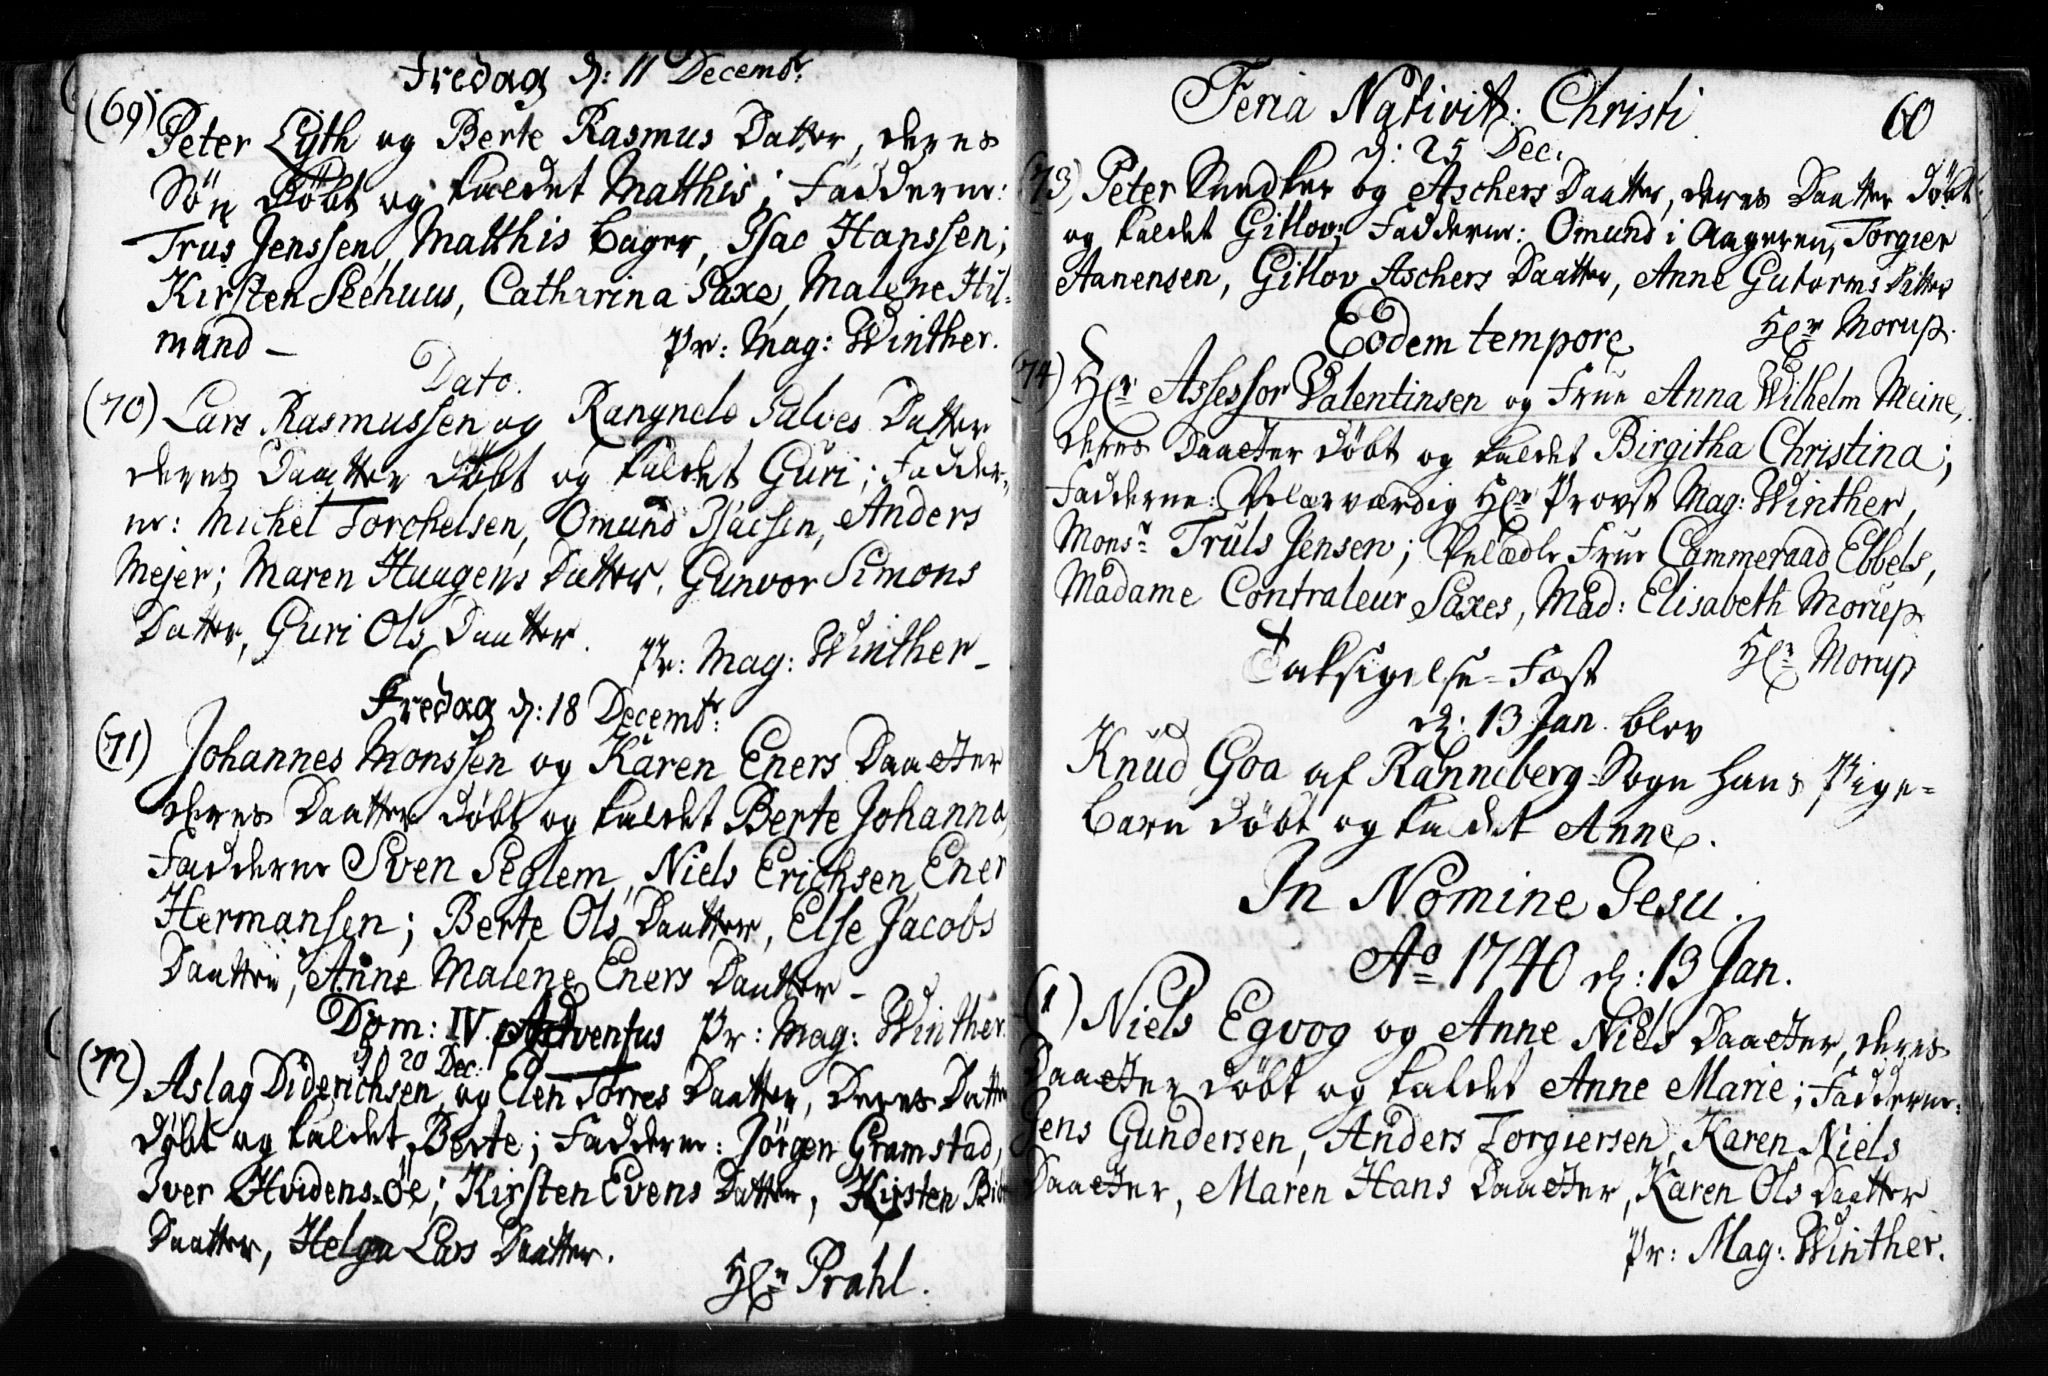 Fredag d: 11 Decembr:
(69) Peter Lyth og Berte Rasmus Datter, deres
Søn Døbt og kaldet Matthis; Fadderne:
Trus Jenssen, Matthis Bager, Isac Hanssen;
Kirsten Seehuus, Catharina Saxe, Malene Hil-
mand – Pr: Mag: Winther.
Dato.
(70) Lars Rasmussen og Rangnele Salves Datter
deres Daatter Døbt og kaldet Guri; Fadder-
ne: Michel Torchelsen, Omund Isacsen, Anders
Mejer; Maren Haagens Datter, Gunvor Simons
Datter, Guri Ols Daatter. Pr: Mag: Winther –
Fredag d: 18 Decembr:
(71) Johannes Monssen og Karen Eners Daatter
deres Daatter Døbt og kaldet Berte Johanna,
Fadderne Sven Seglem, Niels Erichsen, Ener
Hermansen; Berte Ols Daatter, Else Jacobs
Daatter, Anne Malene Eners Daatter –
Dom: IV. Adventus Pr: Mag: Winther.
d. 20 Dec:
(72) Aslag Diderichsen og Elen Torres Daatter, Deres Datter
Døbt og kaldet Berte; Fadderne: Jørgen Gramstad,
Iver Hvidens-Øe; Kirsten Evens Datter, Kirsten
Daatter, Helga Lars Daatter.
Hr Prahl.
Feria Nativit: Christi 60
d: 25 Dec:
(73) Peter Snedker og Aschers Daatter, deres Daatter Døbt
og kaldet Gitlov; Fadderne: Omund i Aageren, Torgier
Aanensen, Gitlov Aschers Daatter, Anne Gutorms Datter
Eodem tempore Hr Morup.
(74) Hr Assessor Valentinsen og Frue Anna Wilhelm Meine,
deres Daatter Døbt og kaldet Birgitha Christina;
Fadderne: Velærværdig Hr Provst Mag: Winther,
Monsr Truls Jensen; Velædle Frue Cammeraad Ebbels,
Madame Contraleur Saxes, Mad: Elisabeth Morup
Taksigelse-Fest Hr Morup
d: 13 Jan. blev
Knud Goa af Ranneberg-Sogn hans Pige-
barn Døbt og kaldet Anne.
In Nomine Jesu.
Ao 1740 d: 13 Jan.
(1) Niels Egvog og Anne Niels Daatter, deres
Daatter Døbt og kaldet Anne Marie; Fadderne:
Jens Gundersen, Anders Torgiersen, Karen Niels
Daatter, Maren Hans Daatter, Karen Ols Daatter
Pr: Mag: Winther.